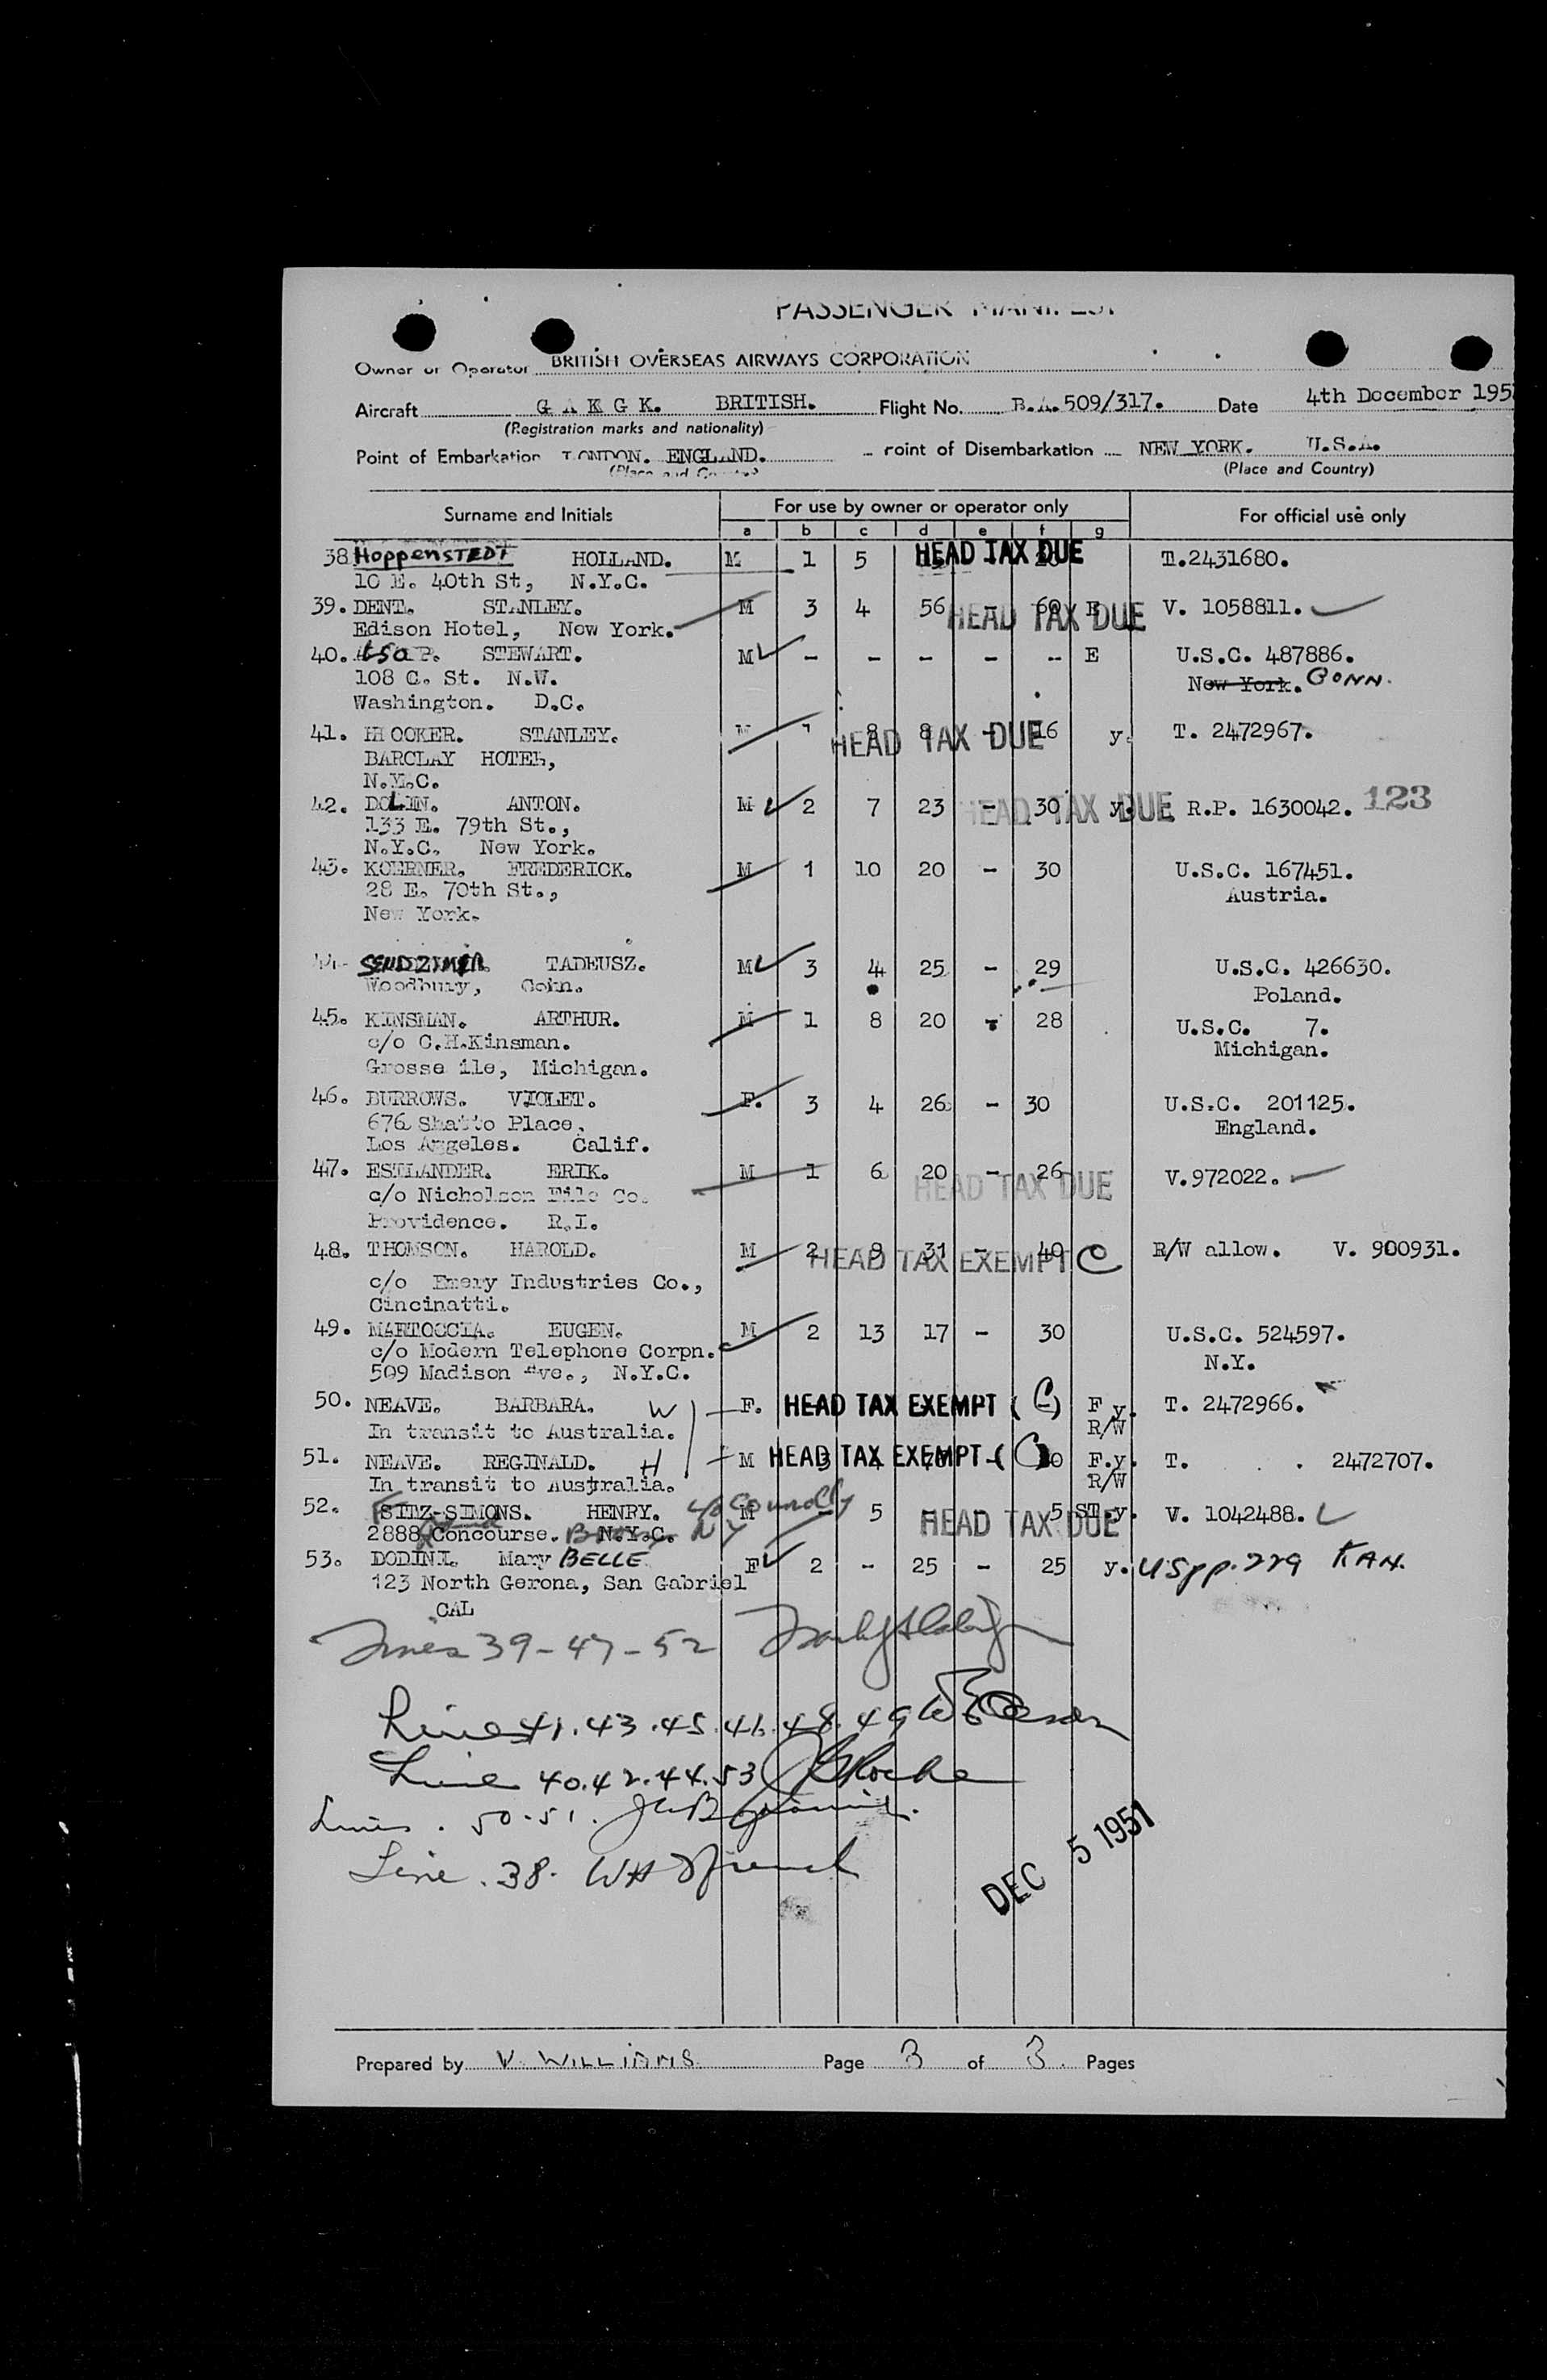 PASSENGER MANIFEST
Owner or Operator BRITISH OVERSEAS AIRWAYS CORPORATION
Aircraft G A K G K. BRITISH. Flight No. B.A.509/317. Date 4th December 195
(Registration marks and nationality)
Point of Embarkation LONDON. ENGLAND. Point of Disembarkation NEW YORK. U.S.A.
(Place and Country) (Place and Country)
Surname and Initials For use by owner or operator only For official use only
a b c d e f g
38 HoppenSTEDT HOLLAND. M 1 5 HEAD TAX DUE T.2431680.
10 E. 40th St, N.Y.C.
39. DENT. STANLEY. M 3 4 56 - 60 E HEAD TAX DUE V. 1058811.
Edison Hotel, New York.
40. STEWART. M - - - - - E U.S.C. 487886.
108 C. St. N.W. New York. CONN.
Washington. D.C.
41. HOOKER. STANLEY. M 1 8 8 - 16 y. HEAD TAX DUE T. 2472967.
BARCLAY HOTEL,
N.Y.C.
42. DOLIN. ANTON. M 2 7 23 - 30 y. HEAD TAX DUE R.P. 1630042. 123
133 E. 79th St.,
N.Y.C. New York.
43. KOERNER. FREDERICK. M 1 10 20 - 30 U.S.C. 167451.
28 E. 70th St., Austria.
New York.
44. SENDZIMER TADEUSZ. M 3 4 25 - 29 U.S.C. 426630.
Woodbury, Conn. Poland.
45. KINSMAN. ARTHUR. M 1 8 20 - 28 U.S.C. 7.
c/o C.H.Kinsman. Michigan.
Grosse ile, Michigan.
46. BURROWS. VIOLET. F. 3 4 26 - 30 U.S.C. 201125.
676 Shatto Place, England.
Los Angeles. Calif.
47. ESTLANDER. ERIK. M 1 6 20 - 26 HEAD TAX DUE V.972022.
c/o Nicholson File Co.
Providence. R.I.
48. THOMSON. HAROLD. M 2 9 31 - 40 HEAD TAX EXEMPT C R/W allow. V. 900931.
c/o Emery Industries Co.,
Cincinatti.
49. MARTOCCIA. EUGEN. M 2 13 17 - 30 U.S.C. 524597.
c/o Modern Telephone Corpn. N.Y.
509 Madison Ave., N.Y.C.
50. NEAVE. BARBARA. W F. HEAD TAX EXEMPT (C) F y. T. 2472966.
In transit to Australia. R/W
51. NEAVE. REGINALD. H M HEAD TAX EXEMPT (C) F.y. T. 2472707.
In transit to Australia. R/W
52. FSITZ-SIMONS. HENRY. c/o Connolly M - 5 5 ST.y. HEAD TAX DUE V. 1042488.
2888 Concourse. N.Y.C. NY
53. DODINI. Mary BELLE F 2 - 25 - 25 y. USpp.229 KAN.
123 North Gerona, San Gabriel
CAL
Lines 39-47-52
Lines 41.43.45.46.48.49
Line 40.42.44.53
Lines. 50-51.
Line. 38. WH French
DEC 5 1951
Prepared by V. WILLIAMS Page 3 of 3. Pages